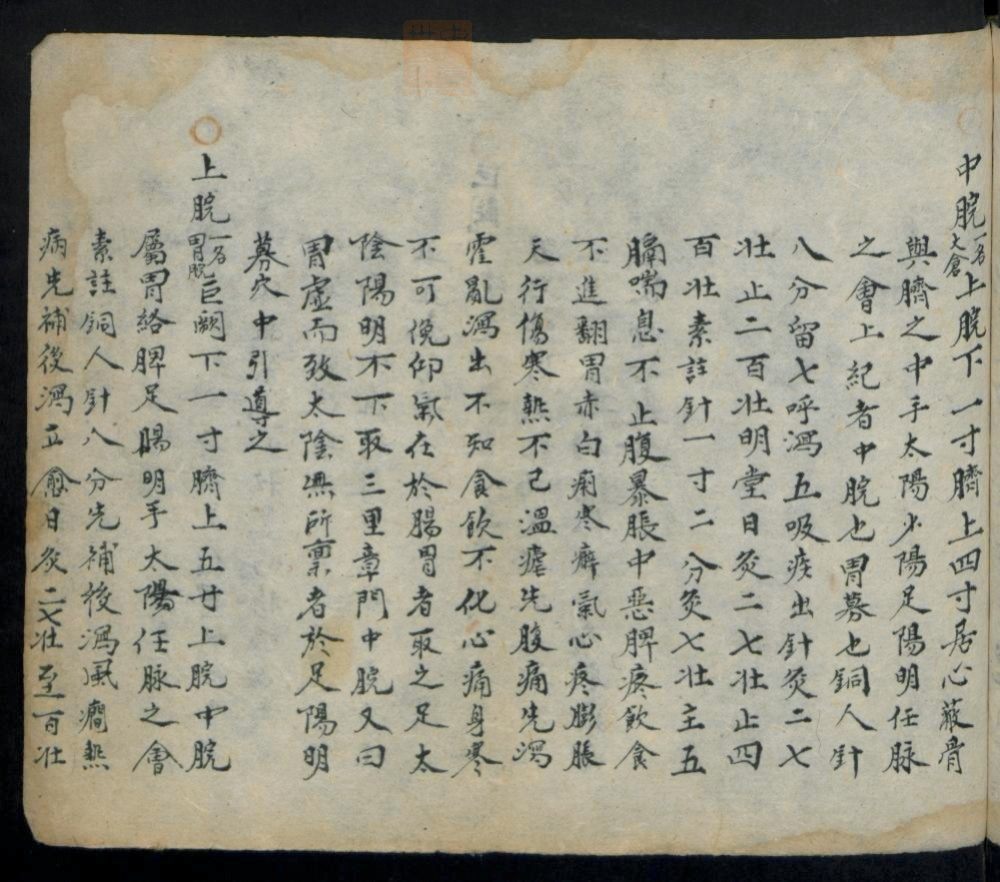 中脘一名太倉上脘下一寸臍上四寸居心蔽骨
與臍之中手太陽少陽足陽明任脉
之會上紀者中脘也胃募也銅人針
八分留七呼瀉五吸疾出針灸二七
壯止二百壯明堂日灸二七壯止四
百壯素註針一寸二分灸七壯主五
膈喘息不止腹暴脹中惡脾疼飲食
不進翻胃赤白痢寒癖氣心疼膨脹
天行傷寒熱不已溫瘧先腹痛先瀉
霍亂瀉出不知食飲不化心痛身寒
不可俛仰氣在於腸胃者取之足太
陰陽明不下取三里章門中脘又曰
胃虛而致太陰無所稟者於足陽明
募穴中引導之
上脘一名胃脘巨闕下一寸臍上五寸上脘中脘
屬胃絡脾足陽明手太陽任脉之會
素註銅人針八分先補後瀉風癇熱
病先補後瀉立愈日灸二七壯至百壯